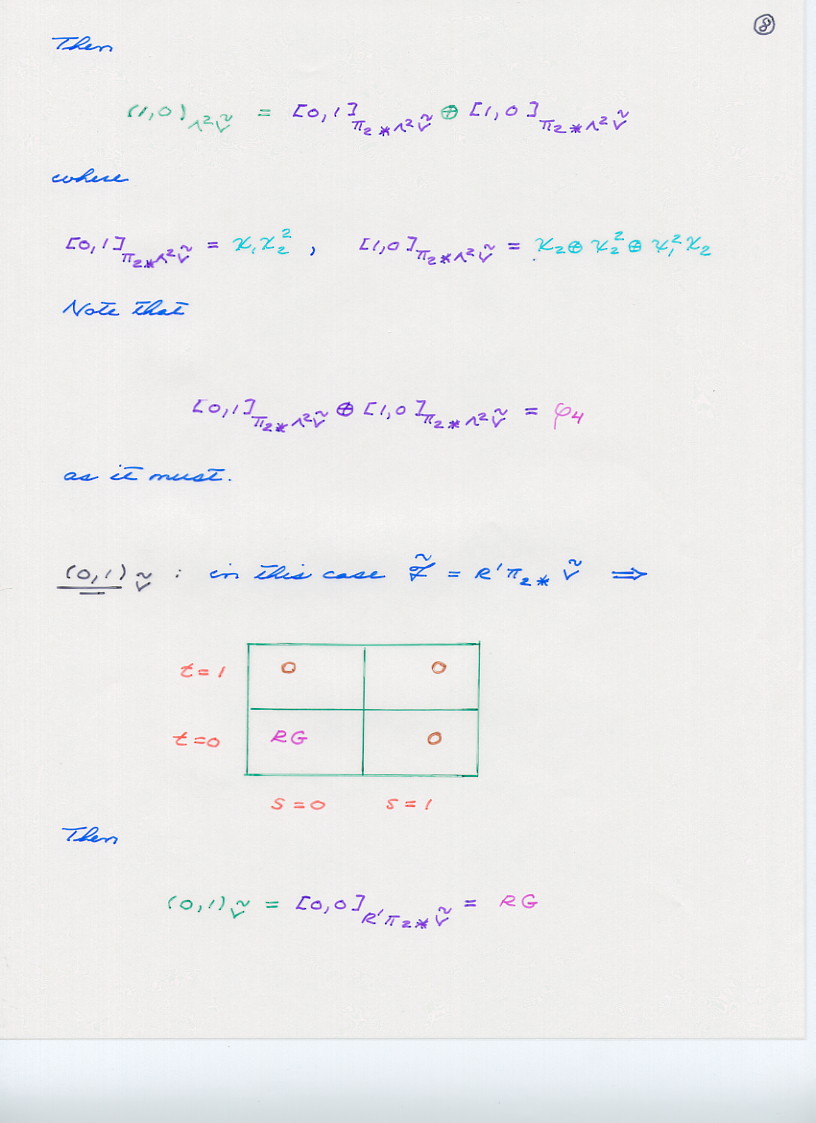 ⑧
Then
(1,0)_{Λ²Ṽ} = [0,1]_{π₂*Λ²Ṽ} ⊕ [1,0]_{π₂*Λ²Ṽ}
where
[0,1]_{π₂*Λ²Ṽ} = χ₁χ₂² , [1,0]_{π₂*Λ²Ṽ} = χ₂ ⊕ χ₂² ⊕ χ₁²χ₂
Note that
[0,1]_{π₂*Λ²Ṽ} ⊕ [1,0]_{π₂*Λ²Ṽ} = φ₄
as it must.
(0,1)_Ṽ : in this case ℱ̃ = R'π₂* Ṽ ⇒
t=1 0 0
t=0 RG 0
s=0 s=1
Then
(0,1)_Ṽ = [0,0]_{R'π₂*Ṽ} = RG